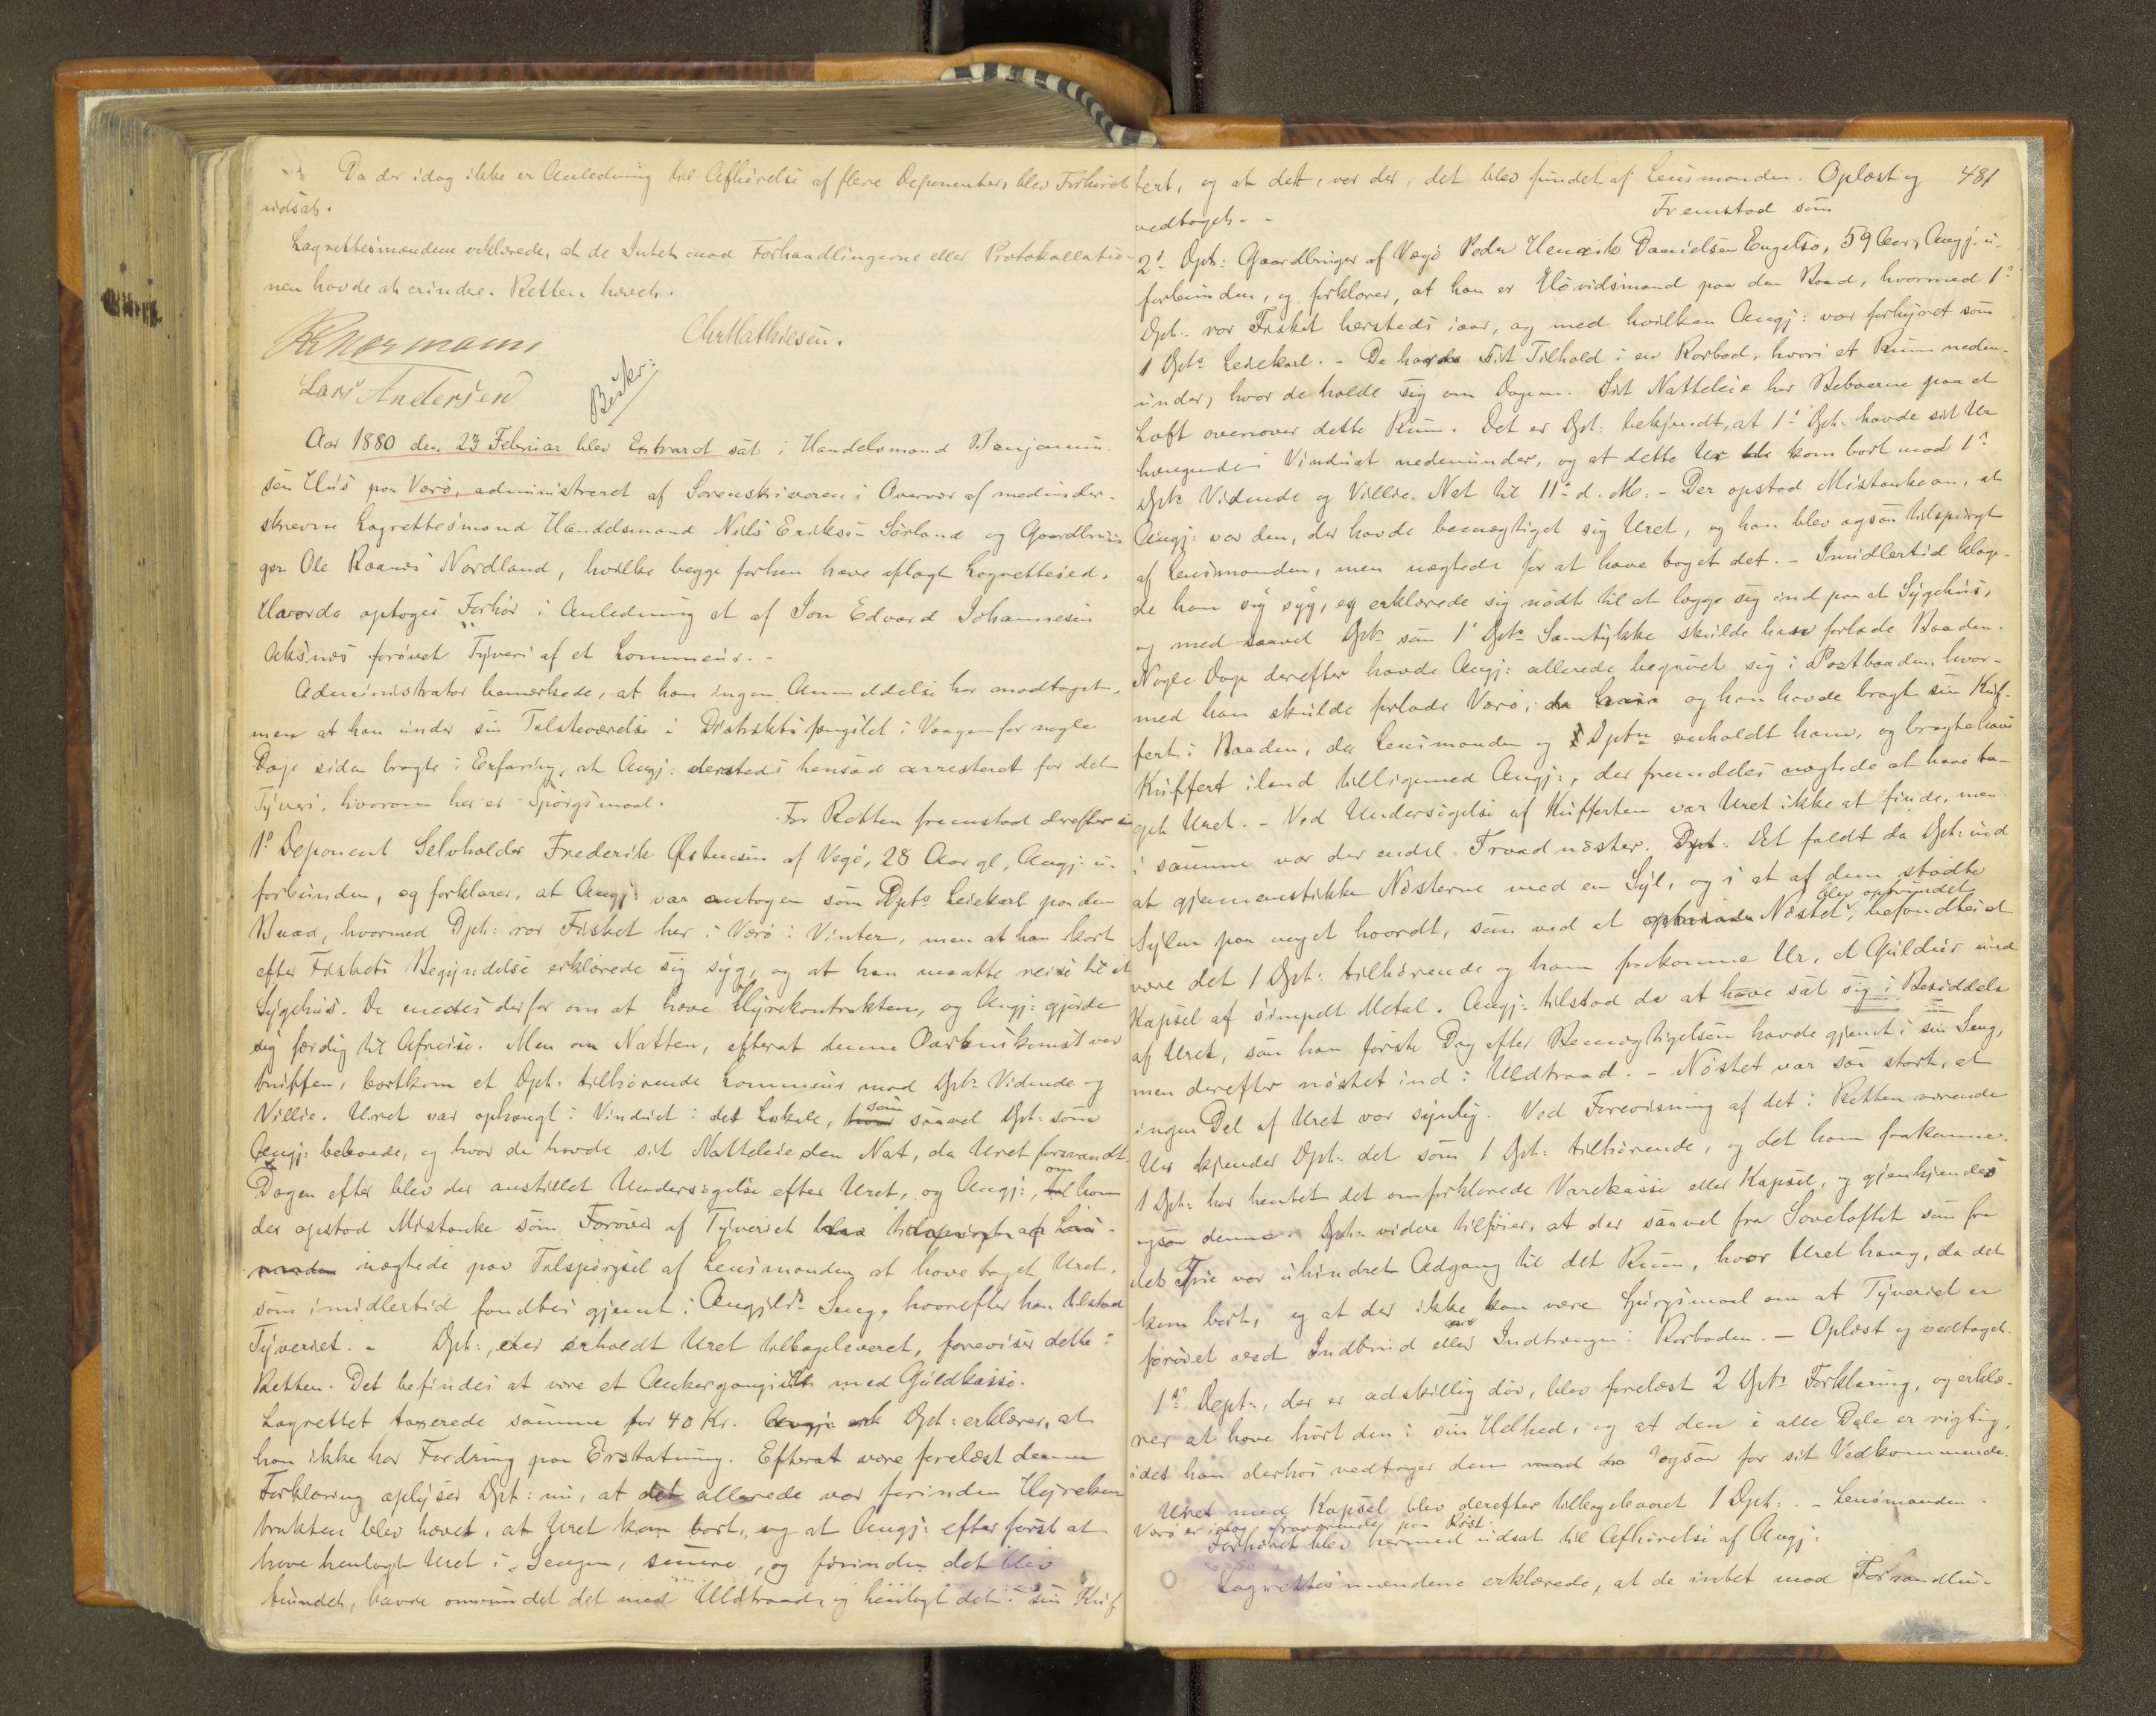 Da der idag ikke er Anledning til Afhörelse af flere Deponenter, blev Forhöret
udsat.
Lagrettesmændene erklærede, at de Intet mod Forhandlingerne eller Protokollatio-
nen havde at erindre. Retten hævet.
Chr Mathiesen.
Lars Andersen
Beskr:
Aar 1880 den 23 Februar blev Extraret sat i Handelsmand Benjamin-
sen Hus paa Værö, administreret af Sorenskriveren i Overvær af medunder-
skrevne Lagrettesmænd Handelsmand Nils Eriksen Sörland og Gaardbru-
ger Ole Raanes Nordland, hvilke begge forhen have aflagt Lagrettesed.
Hvorda optoges Forhör i Anledning et af Jon Edvard Johannesen
Aksnes forövet Tyveri af et Lommeur. -
Administrator bemærkede, at han ingen Anmeldelse har modtaget,
men at han under sin Tilstedeværelse i Distriktsfængslet i Vaagen for nogle
Dage siden bragte i Erfaring, at Angj: dersteds hensad arresteret for det
Tyveri, hvorom her er Spörgsmaal.
For Retten fremstod derefter som
1ste Deponent Selvholder Frederik Östensen af Vegö, 28 Aar gl, Angj: u-
forbunden, og forklarer, at Angj: var antagen som Dpts Leiekarl paa den
Baad, hvormed Dpt: ror Fisket her i Værö i Vinter, men at han kort
efter Fiskets Begyndelse erklærede sig syg, og at han maatte reise til et
Sygehus. De enedes derfor om at hæve Hyrekontrakten, og Angj: gjorde
sig færdig til Afreise. Men om Natten, efterat denne Overenskomst var
truffen, bortkom et Dpt: tilhörende Lommeur mod Dpts Vidende og
Villie. Uret var ophængt i Vinduet i det Lokale, som saavel Dpt: som
Angj: beboede, og hvor de havde sit Natteleie den Nat, da Uret forsvandt.
Dagen efter blev der anstillet Undersögelse efter Uret, og Angj:, om hvem
der opstod Mistanke som Foröver af Tyveriet
nægtede paa Tilspörgsel af Lensmanden at have taget Uret,
som imidlertid fandtes gjemt i Angjelds Seng, hvorefter han tilstod
Tyveriet. - Dpt:, der erholdt Uret tilbageleveret, foreviser dette i
Retten. Det befindes at være et Ankergangsuhr med Guldkasse.
Lagrettet taxerede samme for 40 Kr. Dpt: erklærer, at
han ikke har Fordring paa Erstatning. Efterat være forelæst denne
Forklaring oplyser Dpt: nu, at det allerede var forinden Hyrekon
trakten blev hævet, at Uret kom bort, og at Angj: efter först at
have henlagt Uret i Sengen, senere, og forinden det blev
fundet, havde omvundet det med Uldtraad, og henlagt det i sin Kuf
481
fert, og at det, var der, det blev fundet af Lensmanden. Oplæst og
vedtaget. - Fremstod som
2det Dpt: Gaardbruger af Vegö Peder Henrik Danielsen Engelsö, 59 Aar, Angj: u-
forbunden, og forklarer, at han er Hövidsmand paa den Baad, hvormed 1ste
Dpt: ror Fisket hersteds iaar, og med hvilken Angj: var forhyret som
1 Dpts Leiekarl. - De havde sit Tilhold i en Rorbod, hvori et Rum neden-
under, hvor de holde sig om Dagen. Sit Natteleie har Beboerne paa et
Loft ovenover dette Rum. Det er Dpt: bekjendt, at 1ste Dpt: havde sit Ur
hængende i Vinduet nedenunder, og at dette Ur kom bort mod 1ste
Dpts Vidende og Villie Nat til 11te d. M. - Der opstod Mistanke om, at
Angj: var den, der havde bemægtiget sig Uret, og han blev ogsaa tilspurgt
af Lensmanden, men nægtede for at have taget det. - Imidlertid klage-
de han sig syg, og erklærede sig nödt til at lægge sig ind paa et Sygehus,
og med saavel Dpts som 1ste Dpts Samtykke skulde han forlade Baaden.
Nogle Dage derefter havde Angj: allerede begivet sig i Postbaaden, hvor-
med han skulde forlade Værö, og han havde bragt sin Kuf-
fert i Baaden, da Lensmanden og Dptn anholdt ham, og bragte hans
Kuffert iland tilligemed Angj:, der fremdeles nægtede at have ta-
get Uret. - Ved Undersögelse af Kufferten var Uret ikke at finde, men
i samme var der endel Traadnöster. Det faldt da Dpt: ind
at gjennemstikke Nösterne med en Syl, og i et af dem stödte
Sylen paa noget haardt, som ved at Nöstet blev opvundet, befandtes at
være det 1 Dpt: tilhörende og ham frakomne Ur, et Guldur med
Kapsel af simpelt Metal. Angj: tilstod da at have sat sig i Besiddelse
af Uret, som han förste Dag efter Bemægtigelsen havde gjemt i sin Seng,
men derefter nöstet ind i Uldtraad. - Nöstet var saa stort, at
ingen Del af Uret var synlig. Ved Forevisning af det i Retten værende
Ur kjender Dpt: det som 1 Dpt: tilhörende, og det ham frakomne.
1 Dpt: har hentet det omforklarede Varekasse eller Kapsel, og gjenkjendes
ogsaa denne. Dpt: videre tilföier, at der saavel fra Soveloftet som fra
det Frie var uhindret Adgang til det Rum, hvor Uret hang, da det
kom bort, og at der ikke kan være Spörgsmaal om at Tyveriet er
forövet ved Indbrud eller Indtrængen i Rorboden. - Oplæst og vedtaget.
1ste Dept:, der er adskillig döv, blev forelæst 2 Dpts Forklaring, og erklæ-
rer at have hört den i sin Helhed, og at den i alle Dele er rigtig,
idet han derhos vedtager den ogsaa for sit Vedkommende.
Uret med Kapsel blev derefter tilbageleveret 1 Dpt: - Lensmanden
Værö er idag fraværende paa Röst.
Forhöret blev hermed udsat til Afhörelse af Angj:
Lagrettesmændene erklærede, at de intet mod Forhandlin-